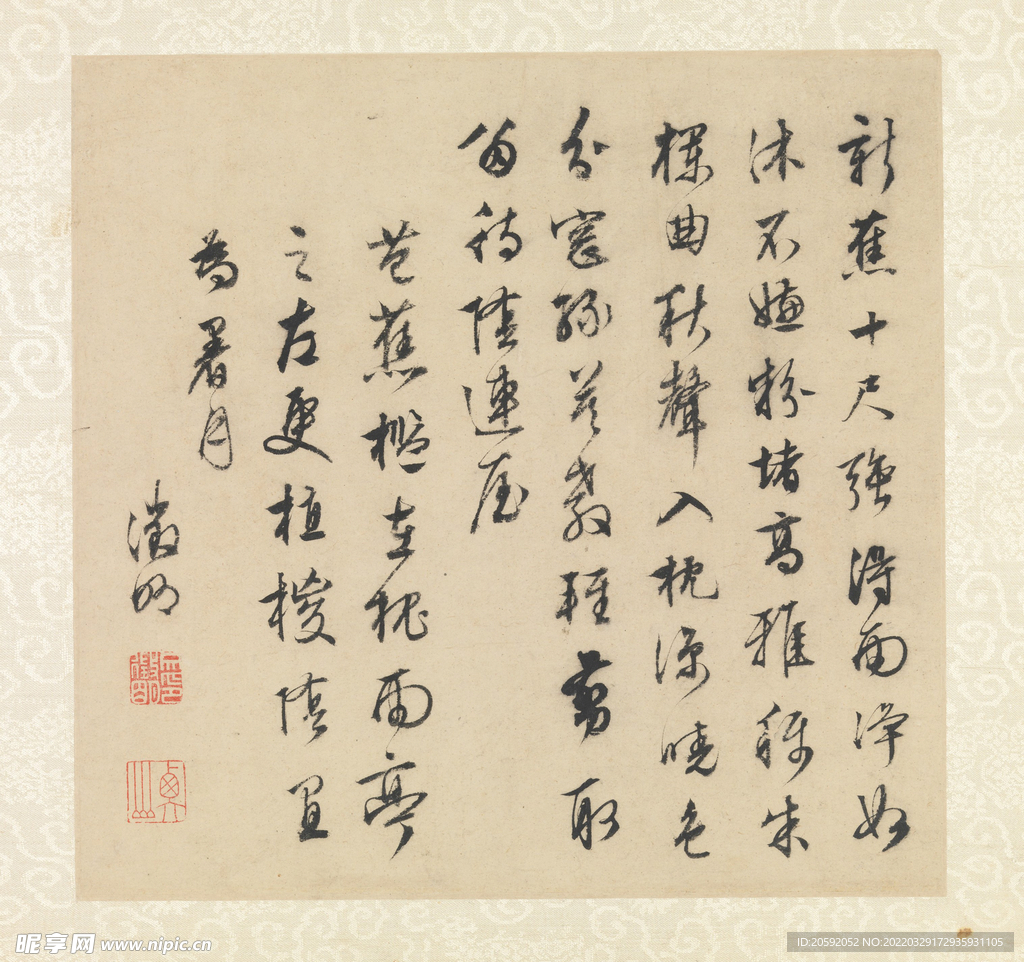 新蕉十尺強得雨淨如
沐不嫌粉堵高雅稱朱
欄曲秋聲入枕涼曉色
分窓綠莫教輕剪取
留待陰連屋
芭蕉檻在槐雨亭
之左更植椶陰宜
為暑月
徵明
昵享网 www.nipic.cn
ID:20592052 NO:20220329172935931105